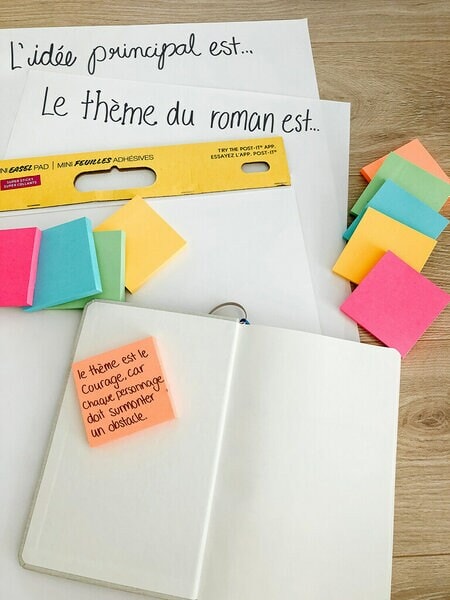 L'idée principal est...
Le thème du roman est...
TRY THE POST-IT® APP.
ESSAYEZ L'APP. POST-IT®.
MINI EASEL PAD | MINI FEUILLES ADHÉSIVES
SUPER STICKY
SUPER COLLANTS
le thème est le
courage, car
chaque personnage
doit surmonter
un obstacle.